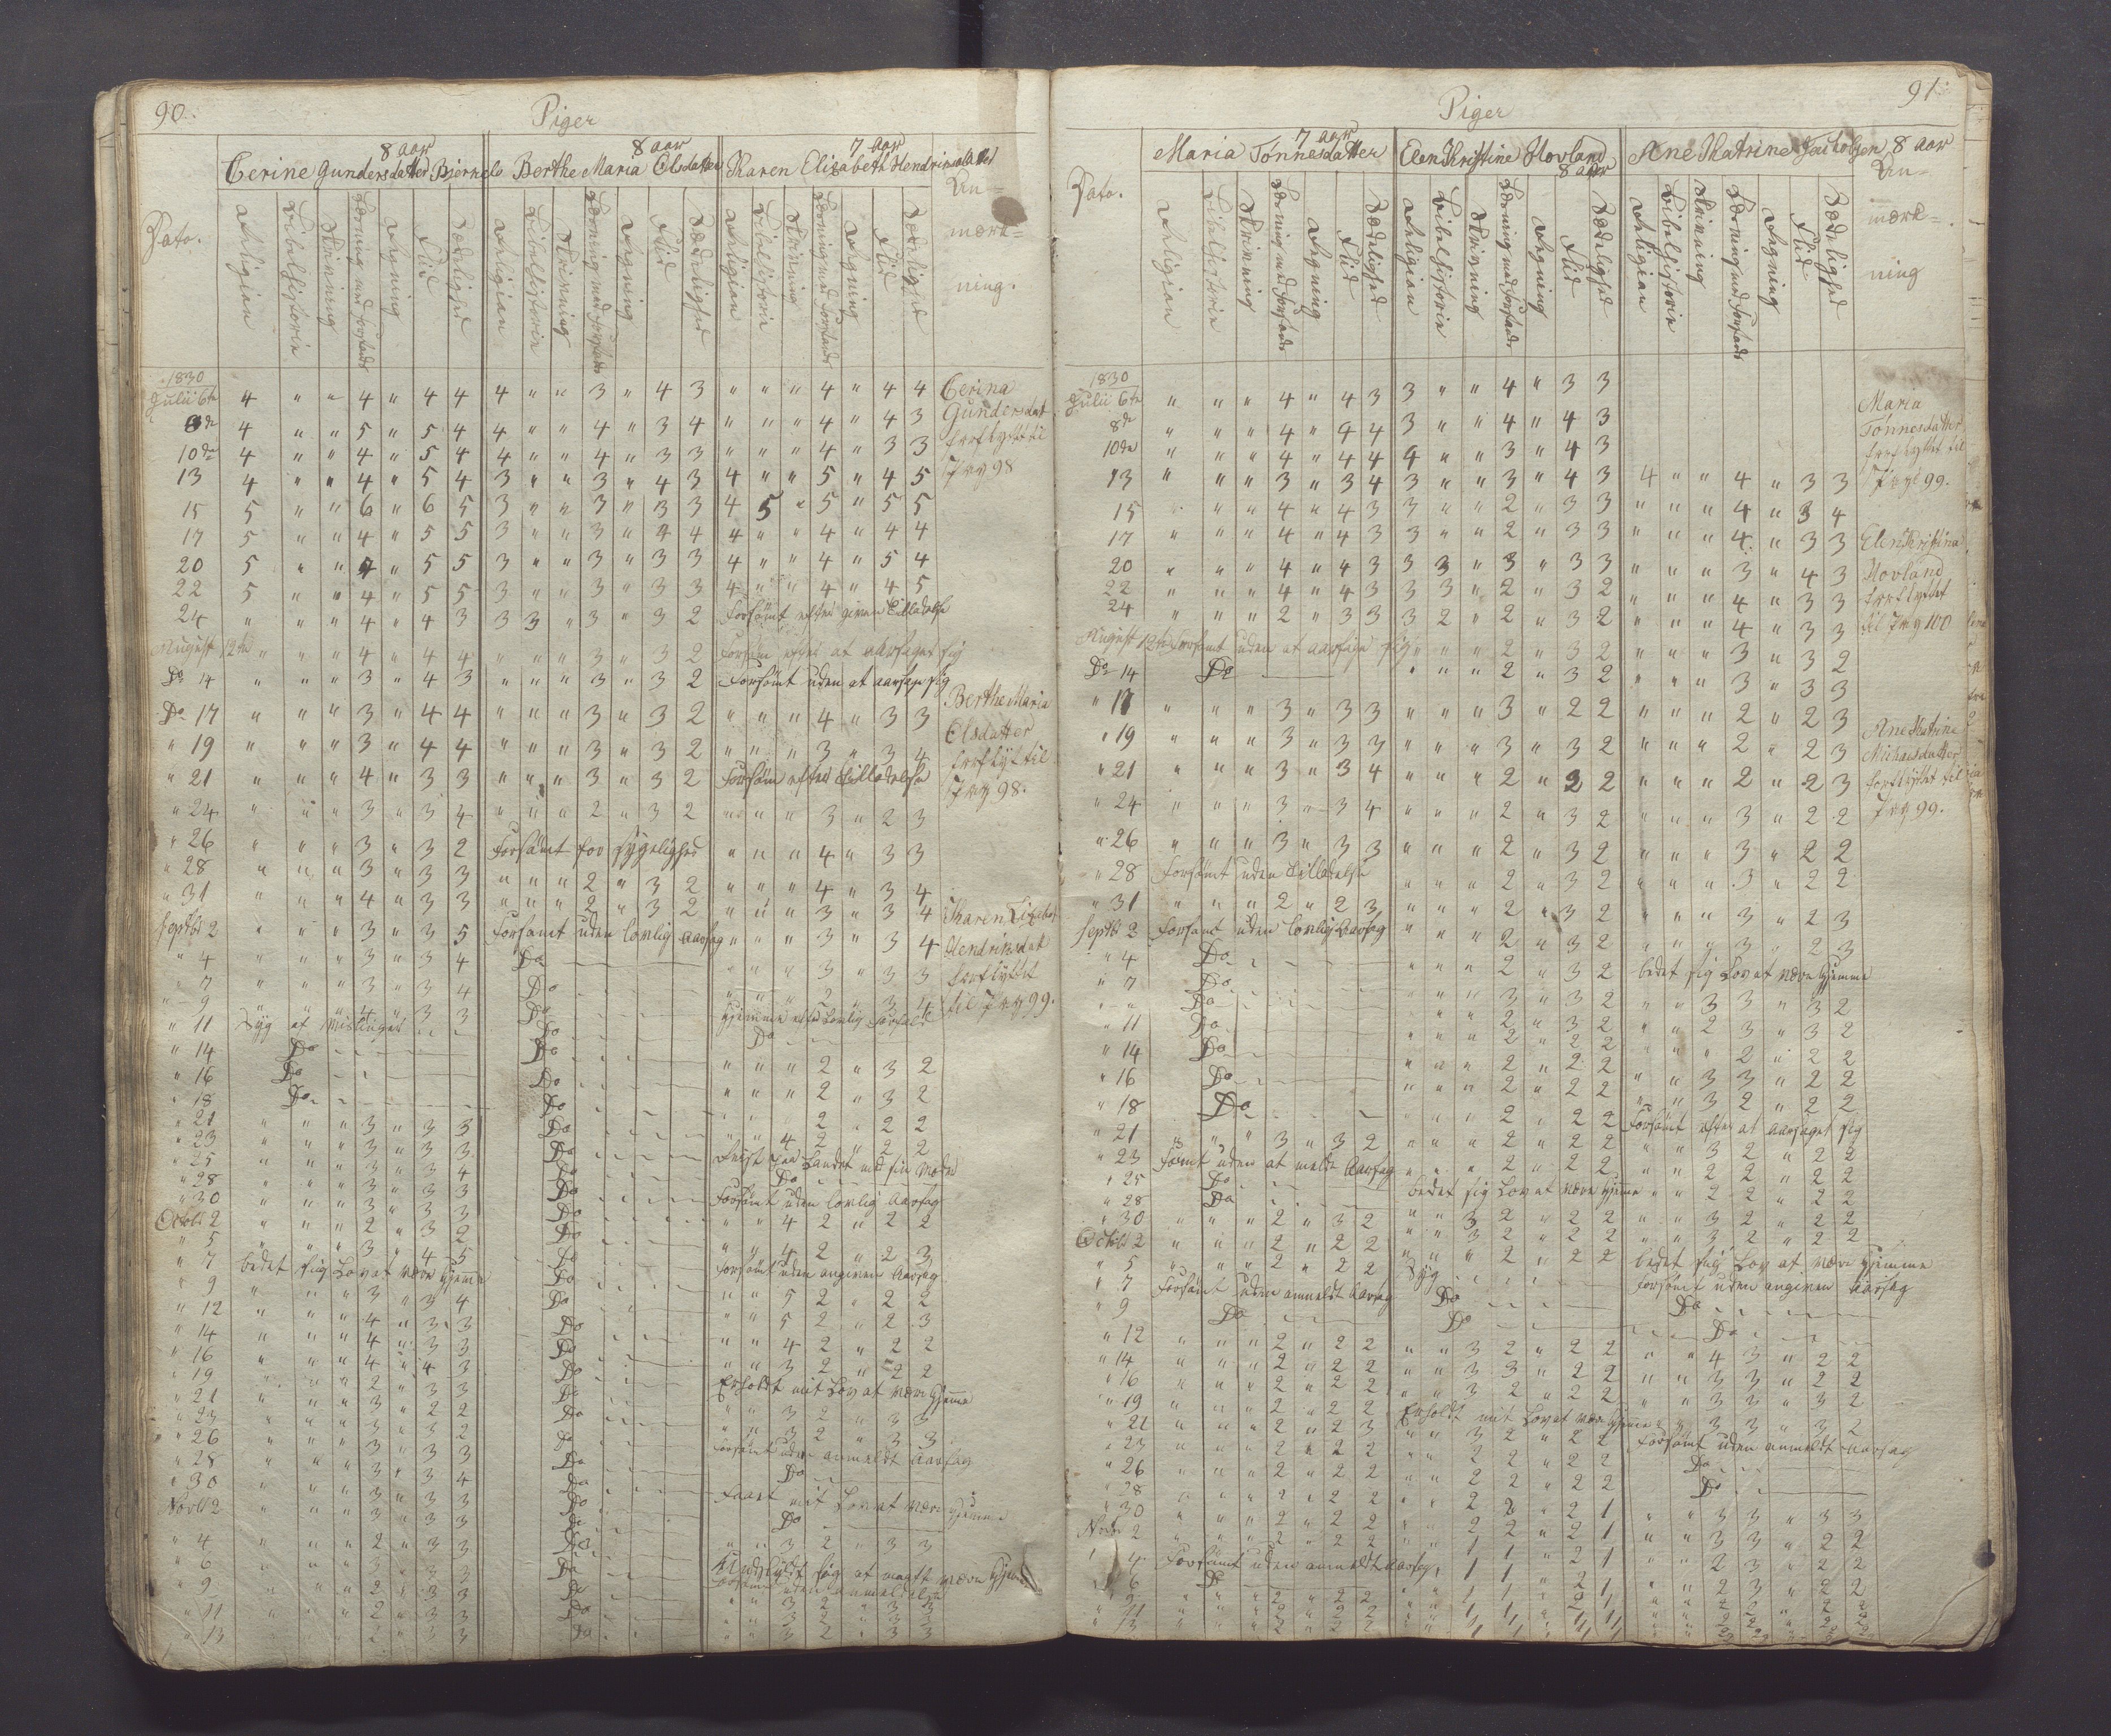 90.
Piger
8 aar
8 aar
7 aar
Cerine Gundersdatter Bjerkel
Berthe Maria Elsdatter
Karen Elisabeth Hendriksdatter
An=
mærk=
ning.
Dato.
Religion
Bibelhistorie
Skrivning
Læsning med Forstand
Regning
Flid
Sædelighed
Religion
Bibelhistorie
Skrivning
Læsning med Forstand
Regning
Flid
Sædelighed
Religion
Bibelhistorie
Skrivning
Læsning med Forstand
Regning
Flid
Sædelighed
1830
Julii 6te 4 " " 4 " 4 4 4 " " 3 " 4 3 " " " 4 " 4 4 Cerina
8de 4 " " 5 " 5 4 4 " " 4 " 3 4 " " " 4 " 4 3 Gundersdat
10de 4 " " 4 " 5 4 4 " " 4 " 3 3 " " " 4 " 3 3 forflyttet til
13 4 " " 4 " 5 4 3 " " 3 " 4 3 4 " " 5 " 4 5 98
15 5 " " 6 " 6 5 3 " " 3 " 3 3 4 5 " 5 " 5 5
17 5 " " 4 " 5 5 3 " " 3 " 4 4 4 " " 4 " 4 4
20 5 " " 4 " 5 5 3 " " 3 " 3 3 4 " " 4 " 5 4
22 5 " " 4 " 5 5 3 " " 3 " 3 3 4 " " 4 " 4 5
24 " " " 4 " 4 3 3 3 " 3 " 3 2 Forsömt efter given Tilladelse
August 12te " " " 4 " 4 4 " " " 3 " 3 2 Forsöm efter at aarsaget sig
Do 14 " " " 3 " 4 3 " " " 3 " 3 2 Forsömt uden at aarsage sig
Do 17 " " " 3 " 4 4 " " " 3 " 3 2 " " " 4 " 3 3 Berthe Maria
" 19 " " " 3 " 4 4 " " " 3 " 3 2 " " " 3 " 3 4 Elsdatter
forflyt til
" 21 " " " 4 " 3 3 " " " 3 " 3 2 Forsöm efter Tilladelse
98.
" 24 " " " 3 " 3 4 " " " 2 " 3 2 " " " 3 " 2 3
" 26 " " " 3 " 3 2 Forsömt for sygelighed " " " 4 " 3 3
" 28 " " " 3 " 3 3 " " " 2 " 3 2 " " " 4 " 3 4
" 31 " " " 4 " 3 3 " " " 2 " 3 2 " " " 3 " 3 4 Karen Elisabet
Septbr 2 " " " 3 " 3 5 Forsömt uden lovlig Aarsag " " " 3 " 3 4 Hendriksdat
" 4 " " " 3 " 3 4 Do " " " 3 " 3 3 forflyttet
" 7 " " " 3 " 3 4 Do " " " 2 " 3 4 til 99.
" 9 " " " 4 " 3 3 Do Hjemme efter Lovlig Forfald
" 11 Syg af Mislinger Do Do
" 14 Do Do " " " 2 " 3 2
" 16 Do Do " " " 2 " 3 2
" 18 Do Do " " " 2 " 2 2
" 21 " " " 3 " 3 3 Do " " 4 2 " 2 2
" 23 " " " 3 " 3 3 Do Reist paa Landet med sin Moder
" 25 " " " 3 " 3 4 Do Do
" 28 " " " 3 " 3 3 Do Forsömt uden lovlig Aarsag
" 30 " " " 3 " 3 3 Do " " 4 2 " 2 2
Octobr 2 " " " 2 " 3 2 Do
" 5 " " " 3 " 4 5 Do " " 4 2 " 2 3
" 7 bedet sig Lov at være hjemme Do Forsömt uden angiven Aarsag
" 9 " " " 3 " 3 4 Do " " 5 2 " 2 2
" 12 " " " 4 " 3 3 Do " " 5 2 " 2 3
" 14 " " " 4 " 3 3 Do " " 4 2 " 2 2
" 16 " " " 4 " 4 3 Do " " 3 2 " 2 2
" 19 " " " 2 " 3 3 Do Erholdt mit Lov at være hjemme
" 21 " " " 3 " 2 2 Do " " 3 2 " 3 3
" 23 " " " 3 " 3 2 Do " " 3 2 " 3 3
" 26 " " " 3 " 3 3 Do Forsömt uden anmeldt Aarsag
" 28 " " " 3 " 3 4 Do Do
" 30 " " " 3 " 3 3 Do Faaet mit Lov at være hjemme
Novbr 2 " " " 3 " 3 3 Do Do
" 4 " " " 2 " 3 3 Do " " 3 2 " 3 3
" 6 " " " 3 " 3 3 Do Undskyldt sig at maatte være hjemme
" 9 " " " 2 " 3 3 Do Forsömt uden anmeldelse
" 11 " " " 2 " 3 3 Do " " 3 2 " 3 3
" 13 " " " 2 " 3 3 Do " " 3 2 " 3 3
91.
Piger
7 aar
Maria Tönnesdatter
Elen Kristine Hovland
8 aar
Ane Katrine Jacobsen 8 aar
An=
mærk=
ning
Dato.
Religion
Bibelhistorie
Skrivning
Læsning med Forstand
Regning
Flid
Sædelighed
Religion
Bibelhistorie
Skrivning
Læsning med Forstand
Regning
Flid
Sædelighed
Religion
Bibelhistorie
Skrivning
Læsning med Forstand
Regning
Flid
Sædelighed
1830
Julii 6te " " " 4 " 4 3 3 " " 4 " 3 3 Maria
8de " " " 4 " 4 4 3 " " 4 " 4 3 Tönnesdatter
10de " " " 4 " 4 4 4 " " 3 " 4 3 forflyttet til
13 " " " 3 " 3 4 3 " " 3 " 4 3 4 " " 4 " 3 3 99.
15 " " " 4 " 4 3 3 " " 2 " 3 3 " " " 4 " 3 4
17 " " " 4 " 4 3 3 " " 2 " 3 3 " " " 4 " 3 3 Elen Kristina
20 " " " 4 " 4 3 3 3 " 3 " 3 3 " " " 3 " 4 3 Hovland
22 " " " 4 " 4 3 3 3 " 2 " 3 2 " " " 4 " 3 3 forflyttet
24 " " " 2 " 3 3 3 2 " 2 " 3 2 " " " 4 " 3 3 til 100
August 12te Forsömt uden at aarsage sig " " " 2 " 3 2 " " " 3 " 3 2
Do 14 Do " " " 2 " 3 2 " " " 3 " 3 3
" 17 " " " 3 " 3 3 " " " 3 " 2 2 " " " 2 " 2 3 Ane Katrine
" 19 " " " 3 " 3 3 " " " 3 " 3 2 " " " 2 " 2 3 Michaelsdatter
" 21 " " " 3 " 3 4 " " " 2 " 3 2 " " " 2 " 2 3 forflyttet til
" 24 " " " 3 " 3 4 " " " 2 " 3 2 " " " 3 " 2 2 99.
" 26 " " " 3 " 3 3 " " " 2 " 3 2 " " " 3 " 2 2
" 28 Forsömt uden Tilladelse " " " 2 " 3 2 " " " 3 " 2 2
" 31 " " " 2 " 2 3 " " " 2 " 3 2 " " " 3 " 2 3
Septbr 2 Forsömt uden lovlig Aarsag " " " 2 " 3 2 " " " 3 " 2 3
" 4 Do " " " 2 " 3 2 bedet sig Lov at være hjemme
" 7 Do " " " 3 " 3 2 " " 3 3 " 3 2
" " Do " " " 2 " 3 2 " " 2 3 " 3 2
" 11 Do " " " 2 " 2 2 " " " 2 " 2 2
" 14 Do " " " 2 " 2 2 " " 3 3 " 2 2
" 16 Do " " " 2 " 2 2 " " 3 2 " 2 2
" 18 Do " " " 2 " 2 2 Forsömt efter at aarsaget sig
" 21 " " " 3 " 3 2 " " " 2 " 2 2 " " 3 2 " 2 2
" 23 Forsömt uden at melde Aarsag " " " 2 " 2 2 " " 2 2 " 2 2
" 25 Do bedet sig Lov at være hjemme " " 2 2 " 2 2
" 28 Do " " 3 2 " 2 2 " " 3 2 " 2 2
" 30 " " " 2 " 3 2 " " 3 2 " 2 2 " " 3 2 " 2 2
Octobr 2 " " " 2 " 2 2 " " " 2 " 2 2 bedet sig Lov at være hjemme
" 5 " " " 2 " 2 2 Syg Forsömt uden angiven Aarsag
" 7 Forsömt uden anmeldt Aarsag Do Do
" 9 Do Do Do
" 12 " " " 2 " 2 2 " " 3 2 " 2 2 " " 4 3 " 2 2
" 14 " " " 2 " 2 2 " " 3 3 " 2 2 " " 3 3 " 2 2
" 16 " " " 2 " 2 2 " " 3 2 " 2 2 " " 3 3 " 3 2
" 19 " " " 2 " 2 2 Erholdt mit Lov at være hjemme " " 3 3 " 3 2
" 21 " " " 2 " 2 3 " " 3 2 " 2 2 Forsömt uden anmeldt Aarsag
" 23 " " " 2 " 2 2 " " 2 2 " 2 2 Do
" 26 " " " 2 " 2 2 " " 2 2 " 2 2 Do
" 28 " " " 2 " 2 2 " " 2 2 " 2 1 " " 3 3 " 3 3
" 30 " " " 2 " 2 2 " " 2 2 " 2 1 " " 3 3 " 2 2
Novbr 2 " " " 2 " 2 2 " " 1 1 " 2 1 " " 2 3 " 2 2
" 4 Forsömt uden anmeldt Aarsag " " 1 1 " 2 1 " " 2 3 " 2 2
" 6 Do
" 9
" 11
" 13